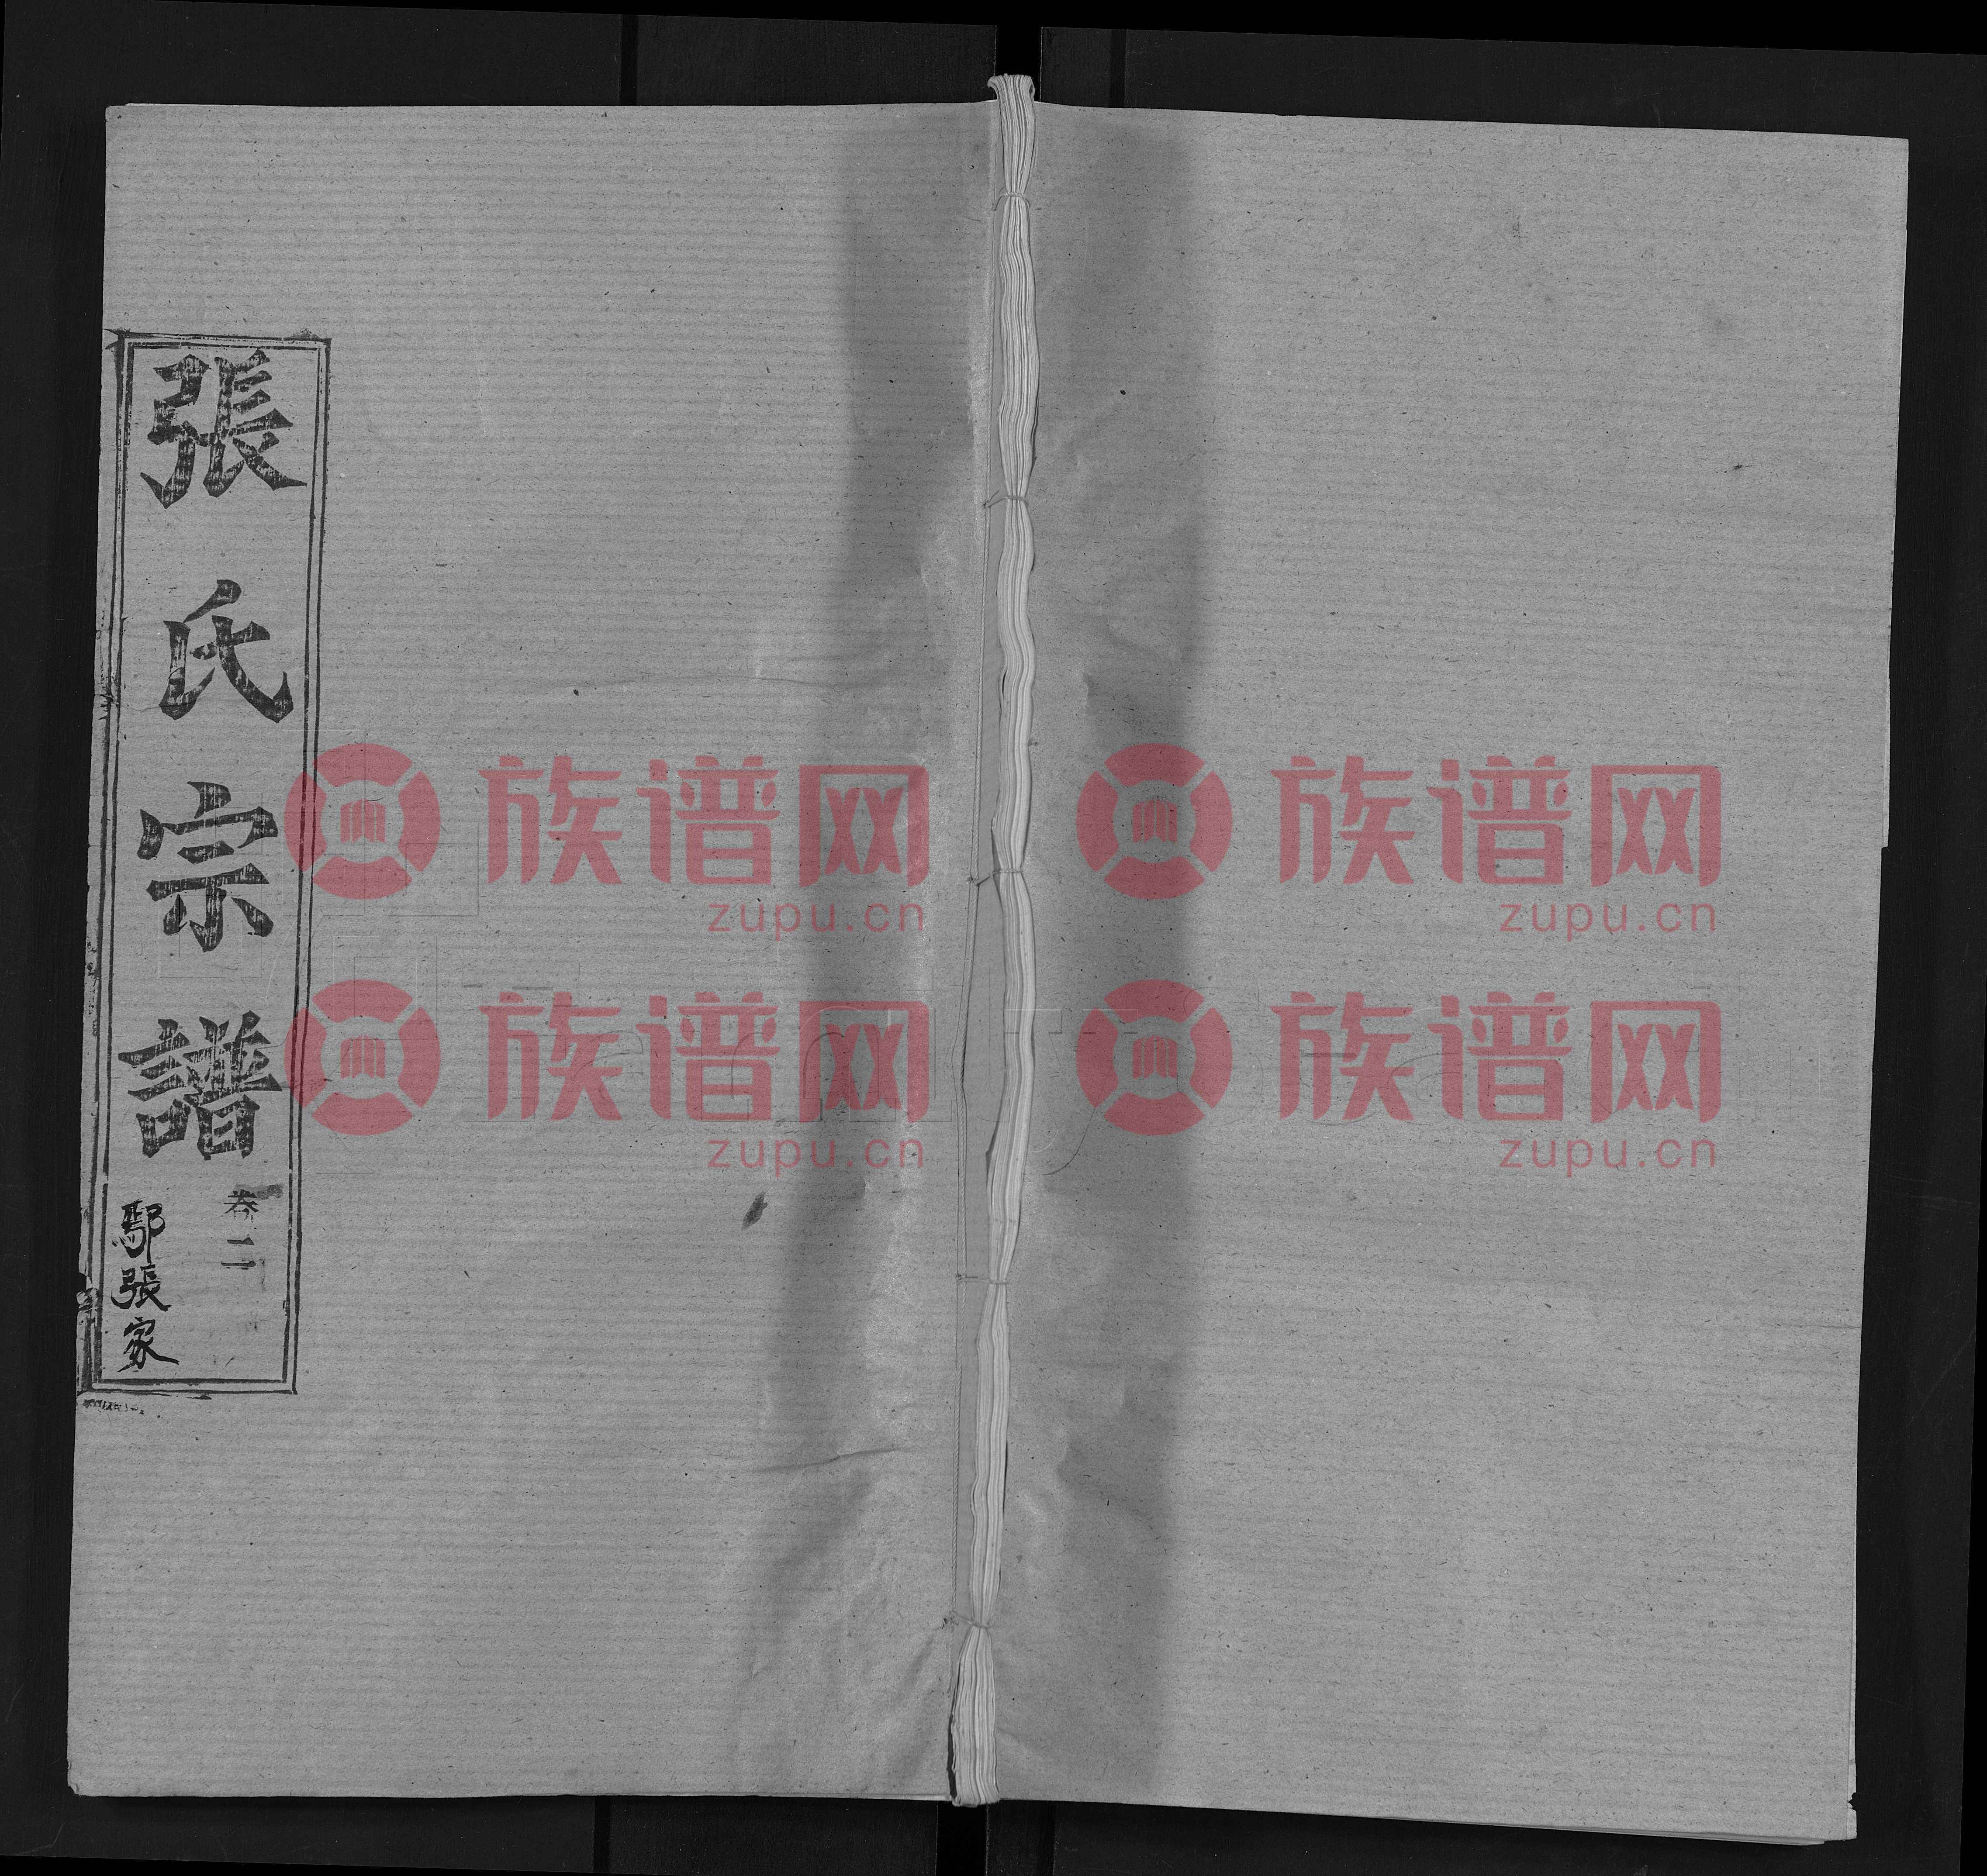 張氏宗譜
卷二
鄢張家
族谱网
zupu.cn
族谱网
zupu.cn
族谱网
zupu.cn
族谱网
zupu.cn